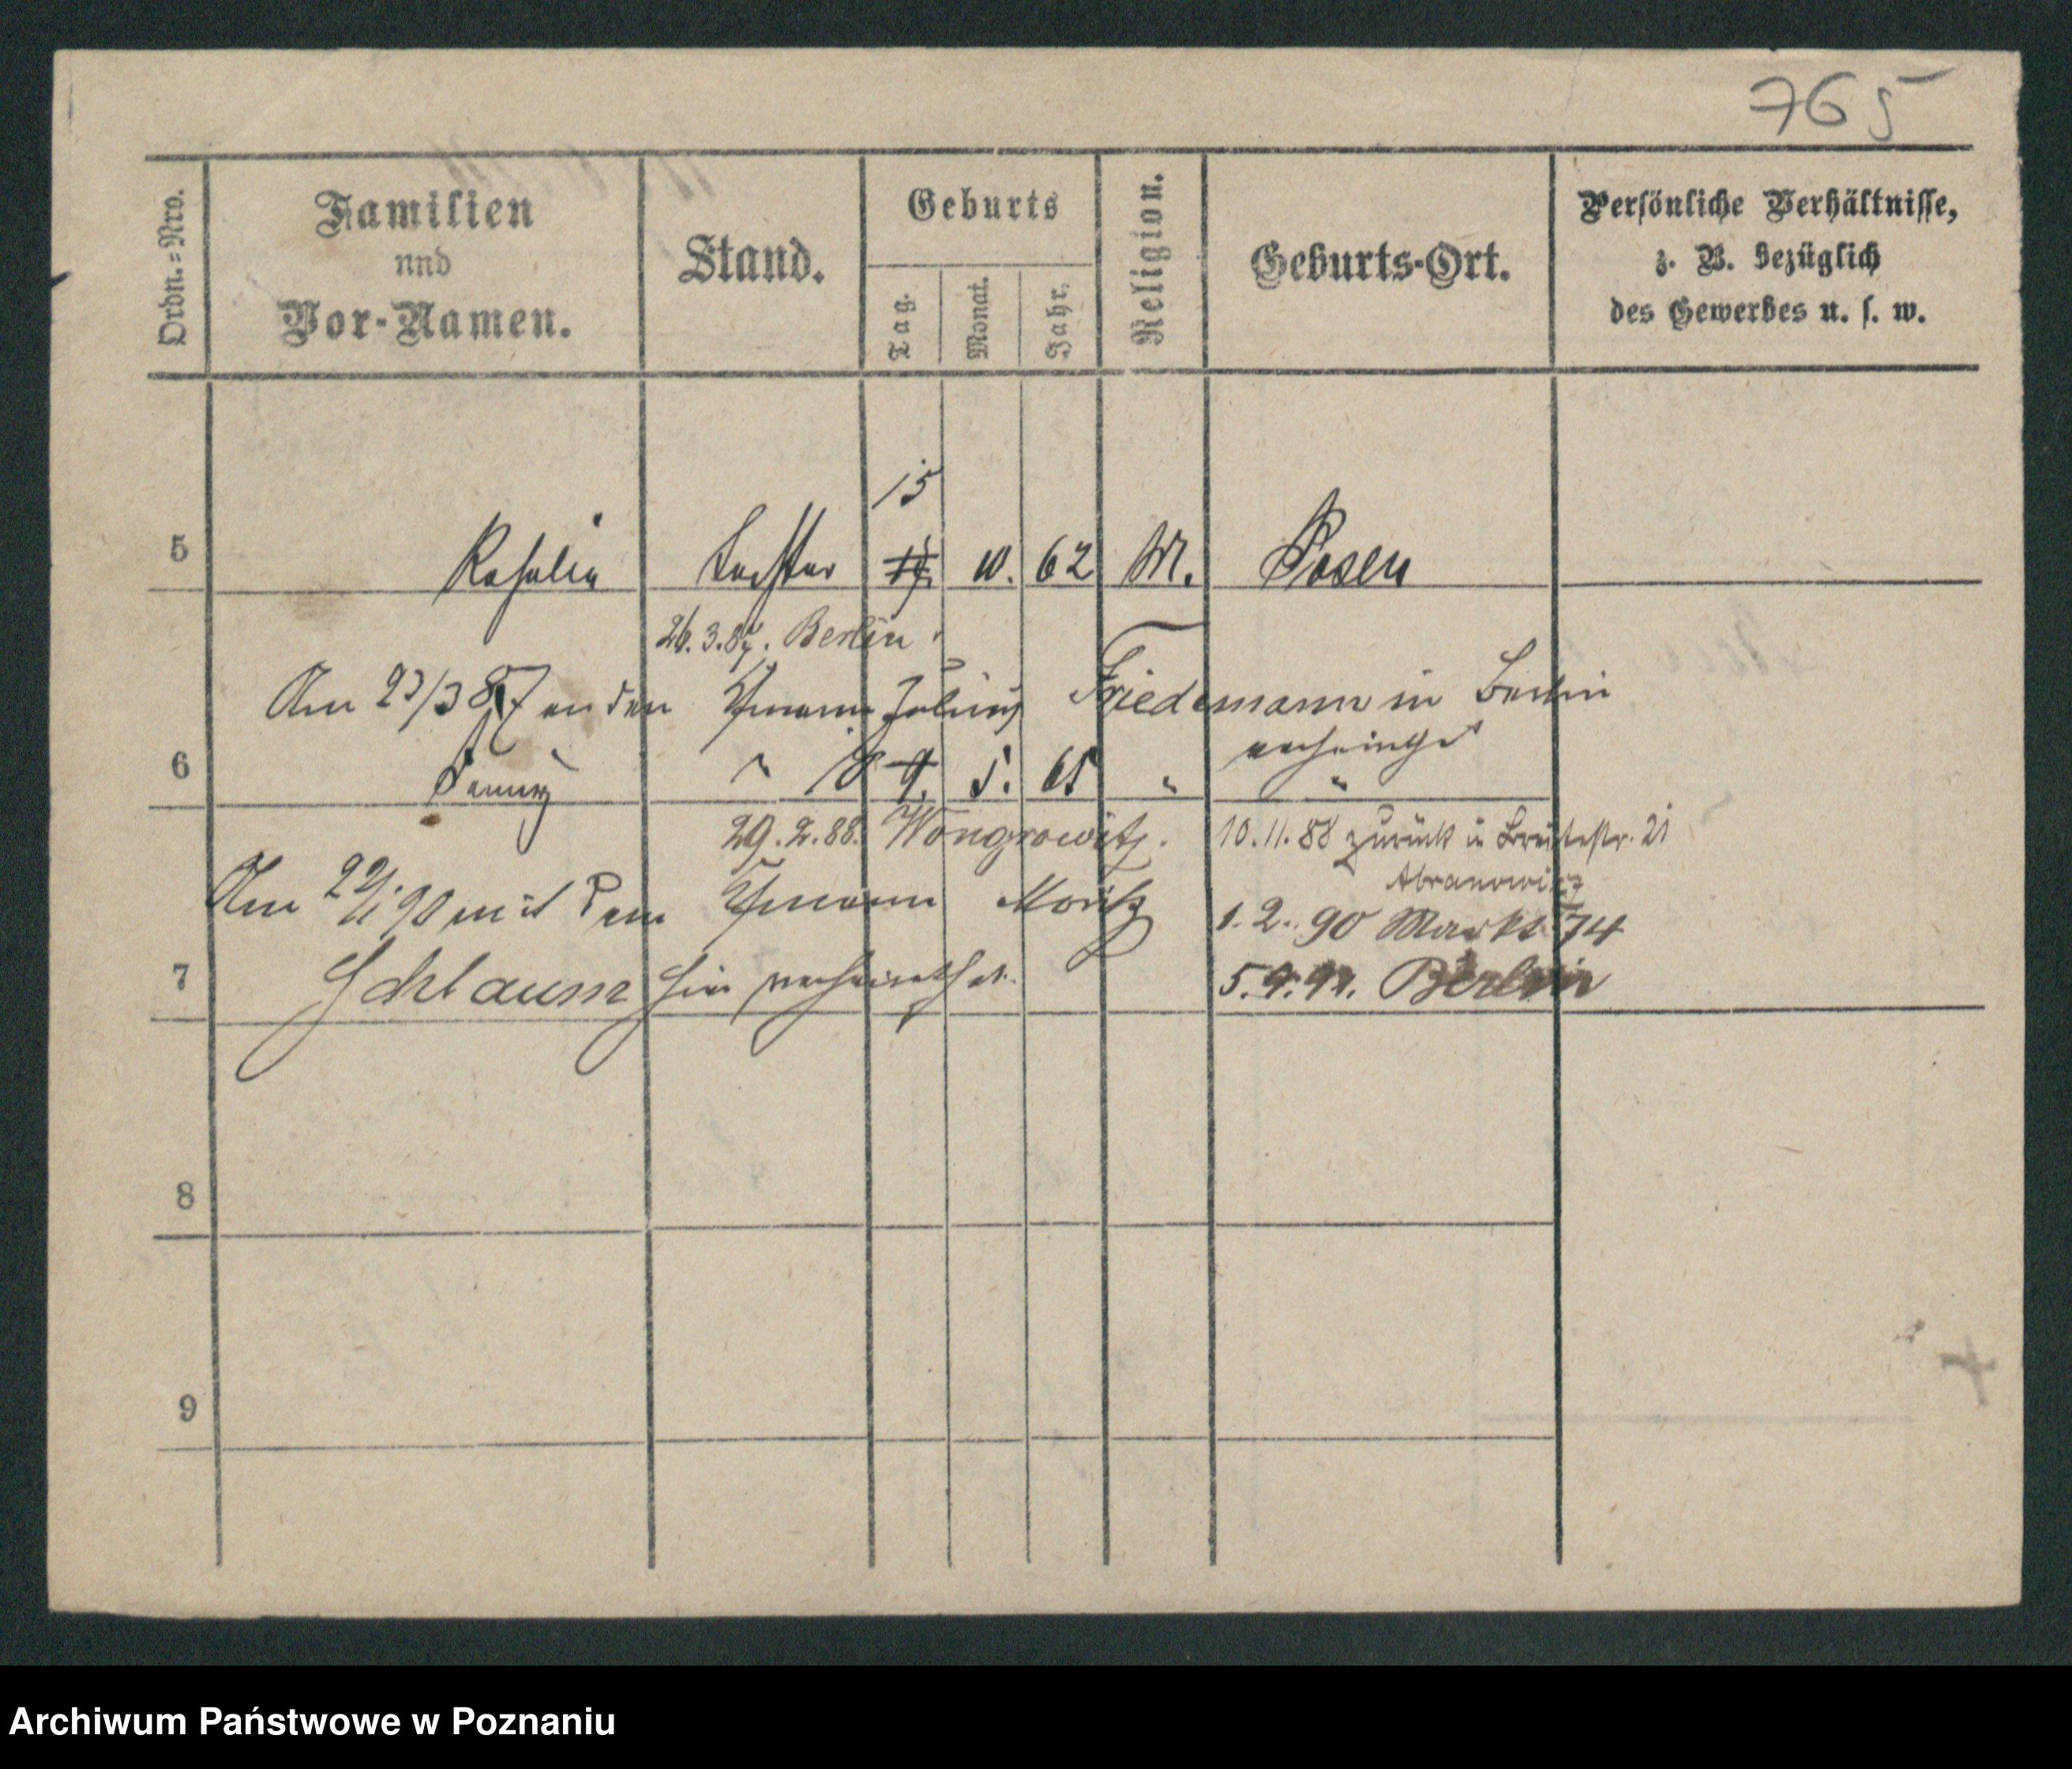 765
Ordn.=Nro.
Familien
und
Vor-Namen.
Stand.
Geburts
Tag.
Monat.
Jahr.
Religion.
Geburts-Ort.
Persönliche Verhältnisse,
z. B. bezüglich
des Gewerbes u. s. w.
15
5 Rosalie Tochter 14. 10. 62 M. Posen
26.3.87. Berlin.
Am 23/3 87 an den Kfmann Julius Friedemann in Berlin
verheirathet
6 " 18 9. 5. 65 " "
29.2.88. Wongrowitz. 10.11.88 zurück in Breitestr. 21
Abranowicz
Am 22/1 90 mit dem Kfmann Moritz 1.2.90 Markt 74
7 Schlaum hier verheirathet. 5.9.91. Berlin
8
9
Archiwum Państwowe w Poznaniu